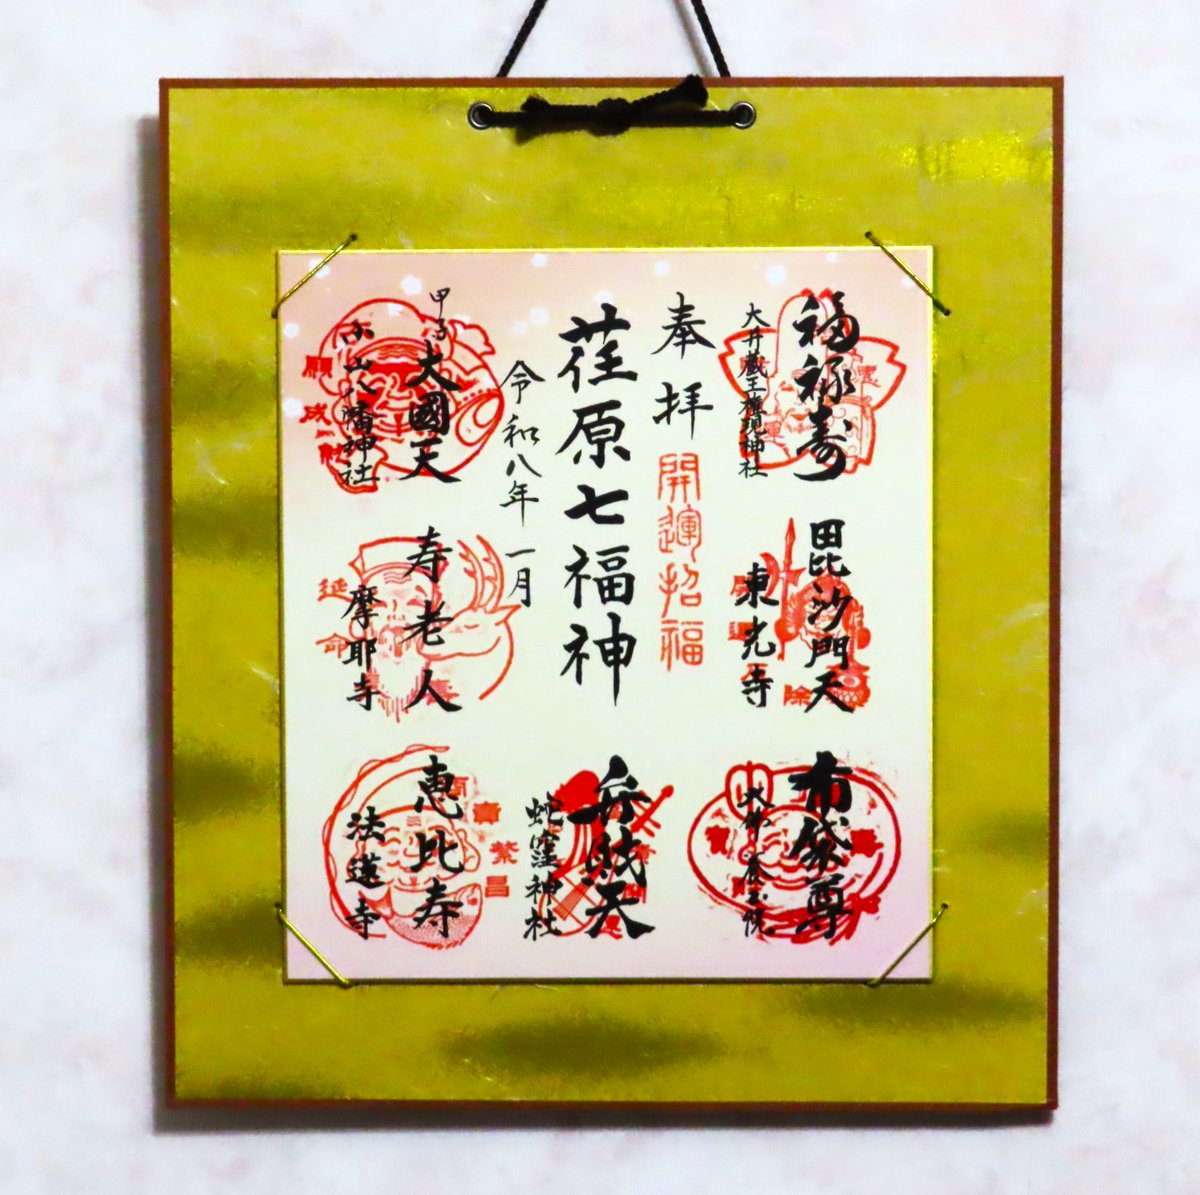 福禄寿
大井蔵王権現神社
毘沙門天
東光寺
布袋尊
奉拝
開運招福
荏原七福神
令和八年一月
弁財天
蛇窪神社
甲子
大國天
小山八幡神社
願
成
寿老人
摩耶寺
延
命
恵比寿
法蓮寺
商
賣
繁
昌